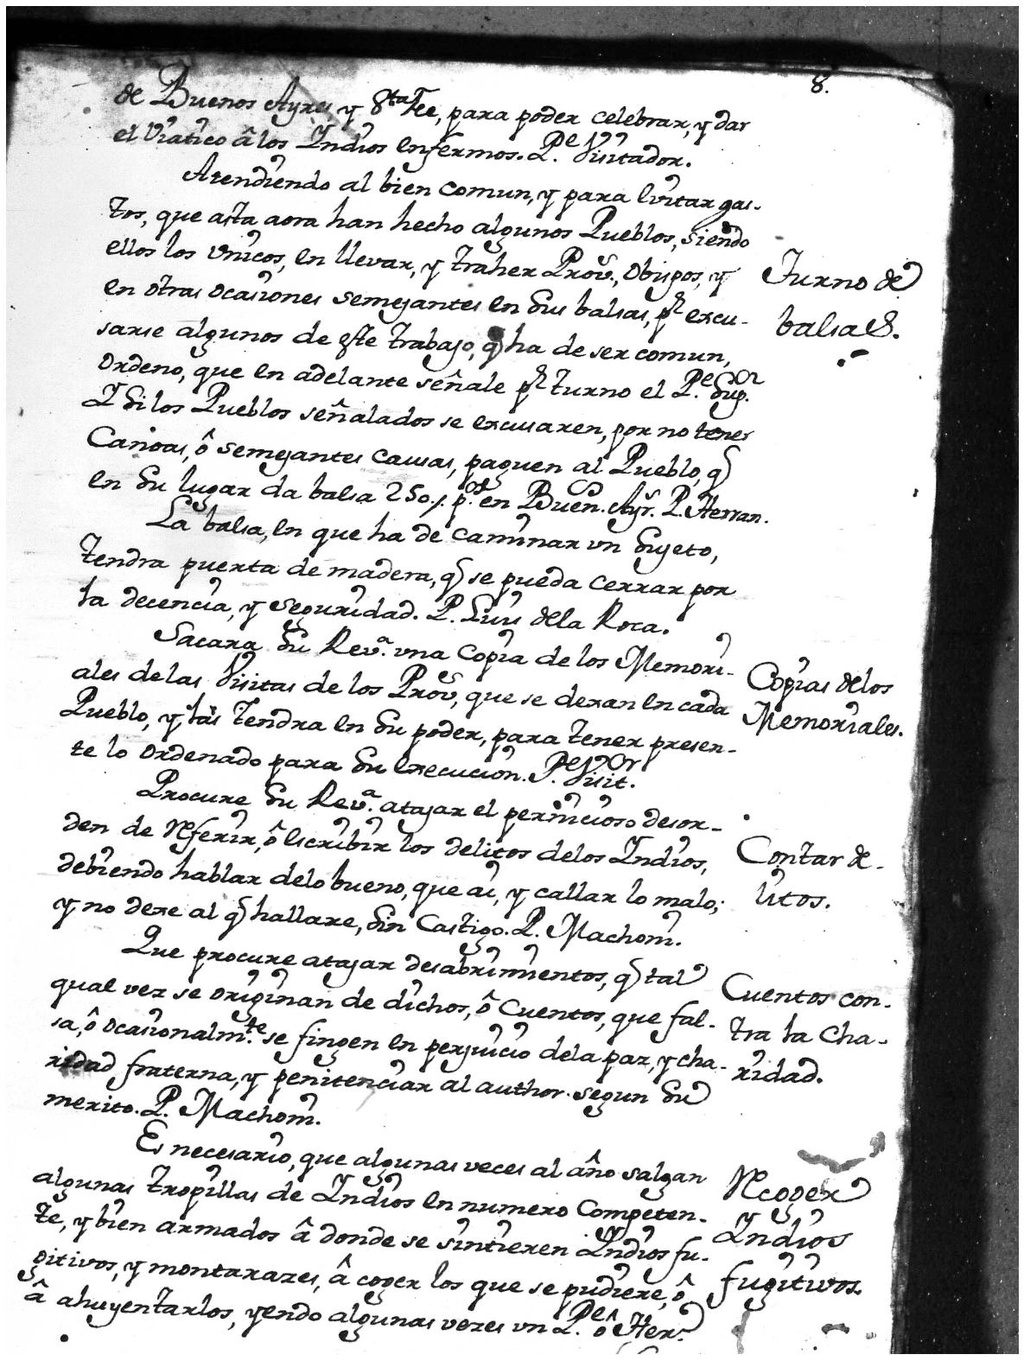 8.
de Buenos Ayres y Sta Fee, para poder celebrar, y dar
el Viatico â los Indios enfermos. Pe. Visitador.
Atendiendo al bien comun, y para evitar gas-
tos, que asta aora han hecho algunos Pueblos, siendo
ellos los Unicos, en llevar, y traher Prov.s, Obispos, y
en otras ocasiones semejantes en sus balsas, pr. excu-
sarse algunos de este trabajo, q ha de ser comun,
Ordeno, que en adelante señale pr. turno el Pe. Supor.
Y si los Pueblos señalados se excusaren, por no tener
Canoas, ô semejantes causas, paguen al Pueblo, q
en su lugar da balsa 250. ps. en Buen. Ayr.s P. Herran.
Turno de
balsas.
La balsa, en que ha de caminar un Sujeto,
tendra puerta de madera, q se pueda cerrar por
la decencia, y seguridad. P. Luis dela Roca.
Sacara su Reva. una Copia de los Memori-
ales de las Visitas de los Provs, que se dexan en cada
Pueblo, y las tendra en su poder, para tener presen-
te lo ordenado para su execucion. Pe. Visitor.
Copias delos
Memoriales.
Procure su Reva. atajar el pernicioso desor-
den de Referir, ô escribir los delitos delos Indios,
debiendo hablar delo bueno, que ai, y callar lo malo;
y no dexe al q hallare, sin Castigo. P. Machoni.
Contar de-
litos.
Que procure atajar desabrimientos, q tal
qual vez se originan de dichos, ô Cuentos, que fal-
sa, ô ocasionalmte. se fingen en perjuicio dela paz, y cha-
ridad fraterna, y penitenciar al author segun su
merito. P. Machoni.
Cuentos con-
tra la Cha-
ridad.
Es necesario, que algunas veces al año salgan
algunas tropillas de Indios en numero Competen-
te, y bien armados â donde se sintieren Indios fu-
gitivos, y montarazes, â coger los que se pudiere, ô
â ahuyentarlos, yendo algunas vezes un Pe. ô Herº
Recoger
Indios
fugitivos.